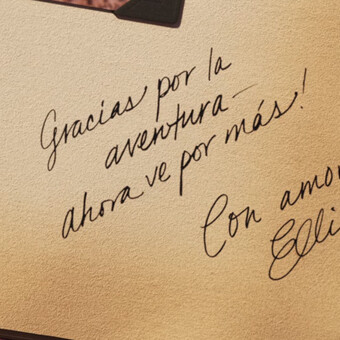 Gracias por la
aventura —
ahora ve por más!
Con amor
Elli